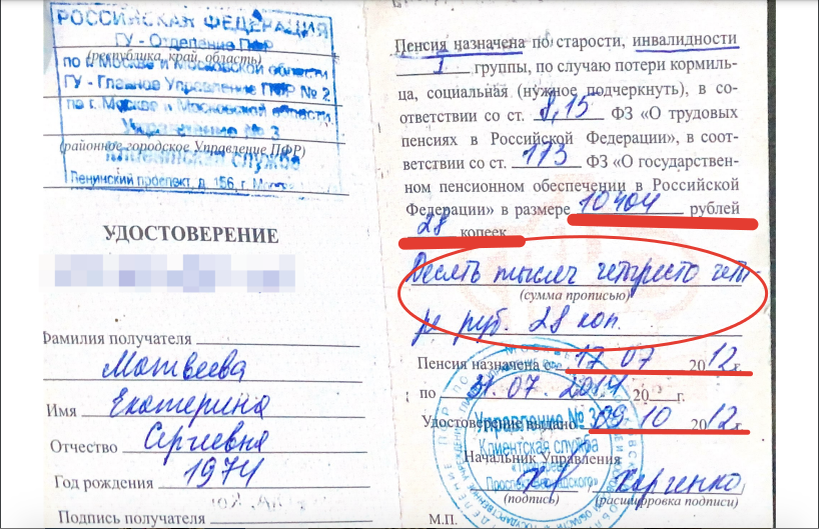 РОССИЙСКАЯ ФЕДЕРАЦИЯ
ГУ - Отделение ПФР
(республика, край, область)
по г. Москве и Московской области
ГУ - Главное Управление ПФР № 2
по г. Москве и Московской области
Управление № 3
(районное городское Управление ПФР)
Клиентская служба
Ленинский проспект, д. 156, г.
УДОСТОВЕРЕНИЕ
Фамилия получателя
Матвеева
Имя Екатерина
Отчество Сергеевна
Год рождения 1974
Подпись получателя
Пенсия назначена по старости, инвалидности
I группы, по случаю потери кормиль-
ца, социальная (нужное подчеркнуть), в со-
ответствии со ст. 8,15 ФЗ «О трудовых
пенсиях в Российской Федерации», в соот-
ветствии со ст. 113 ФЗ «О государствен-
ном пенсионном обеспечении в Российской
Федерации» в размере 10404 рублей
28 копеек
Десять тысяч четыресто четы-
(сумма прописью)
ре руб. 28 коп.
Пенсия назначена с 17 07 2012 г.
по 31.07.2014 20 г.
Удостоверение выдано 09 10 2012 г.
Управление № 3
Клиентская служба
Начальник Управления
Харченко
(подпись) (расшифровка подписи)
М.П.